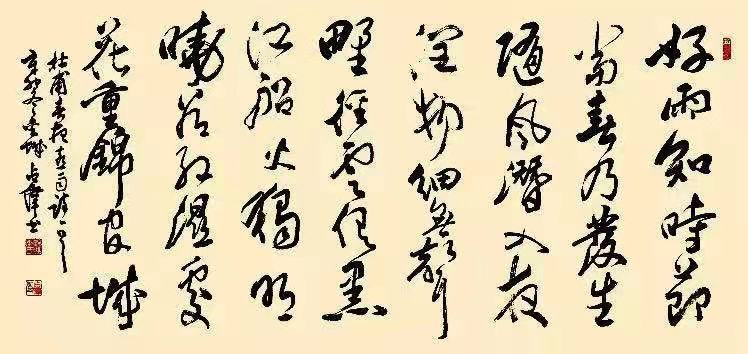 好雨知時節
當春乃發生
隨風潛入夜
潤物細無聲
野徑雲俱黑
江船火獨明
曉看紅濕處
花重錦官城
杜甫春夜喜雨詩一首
卯冬 城 書